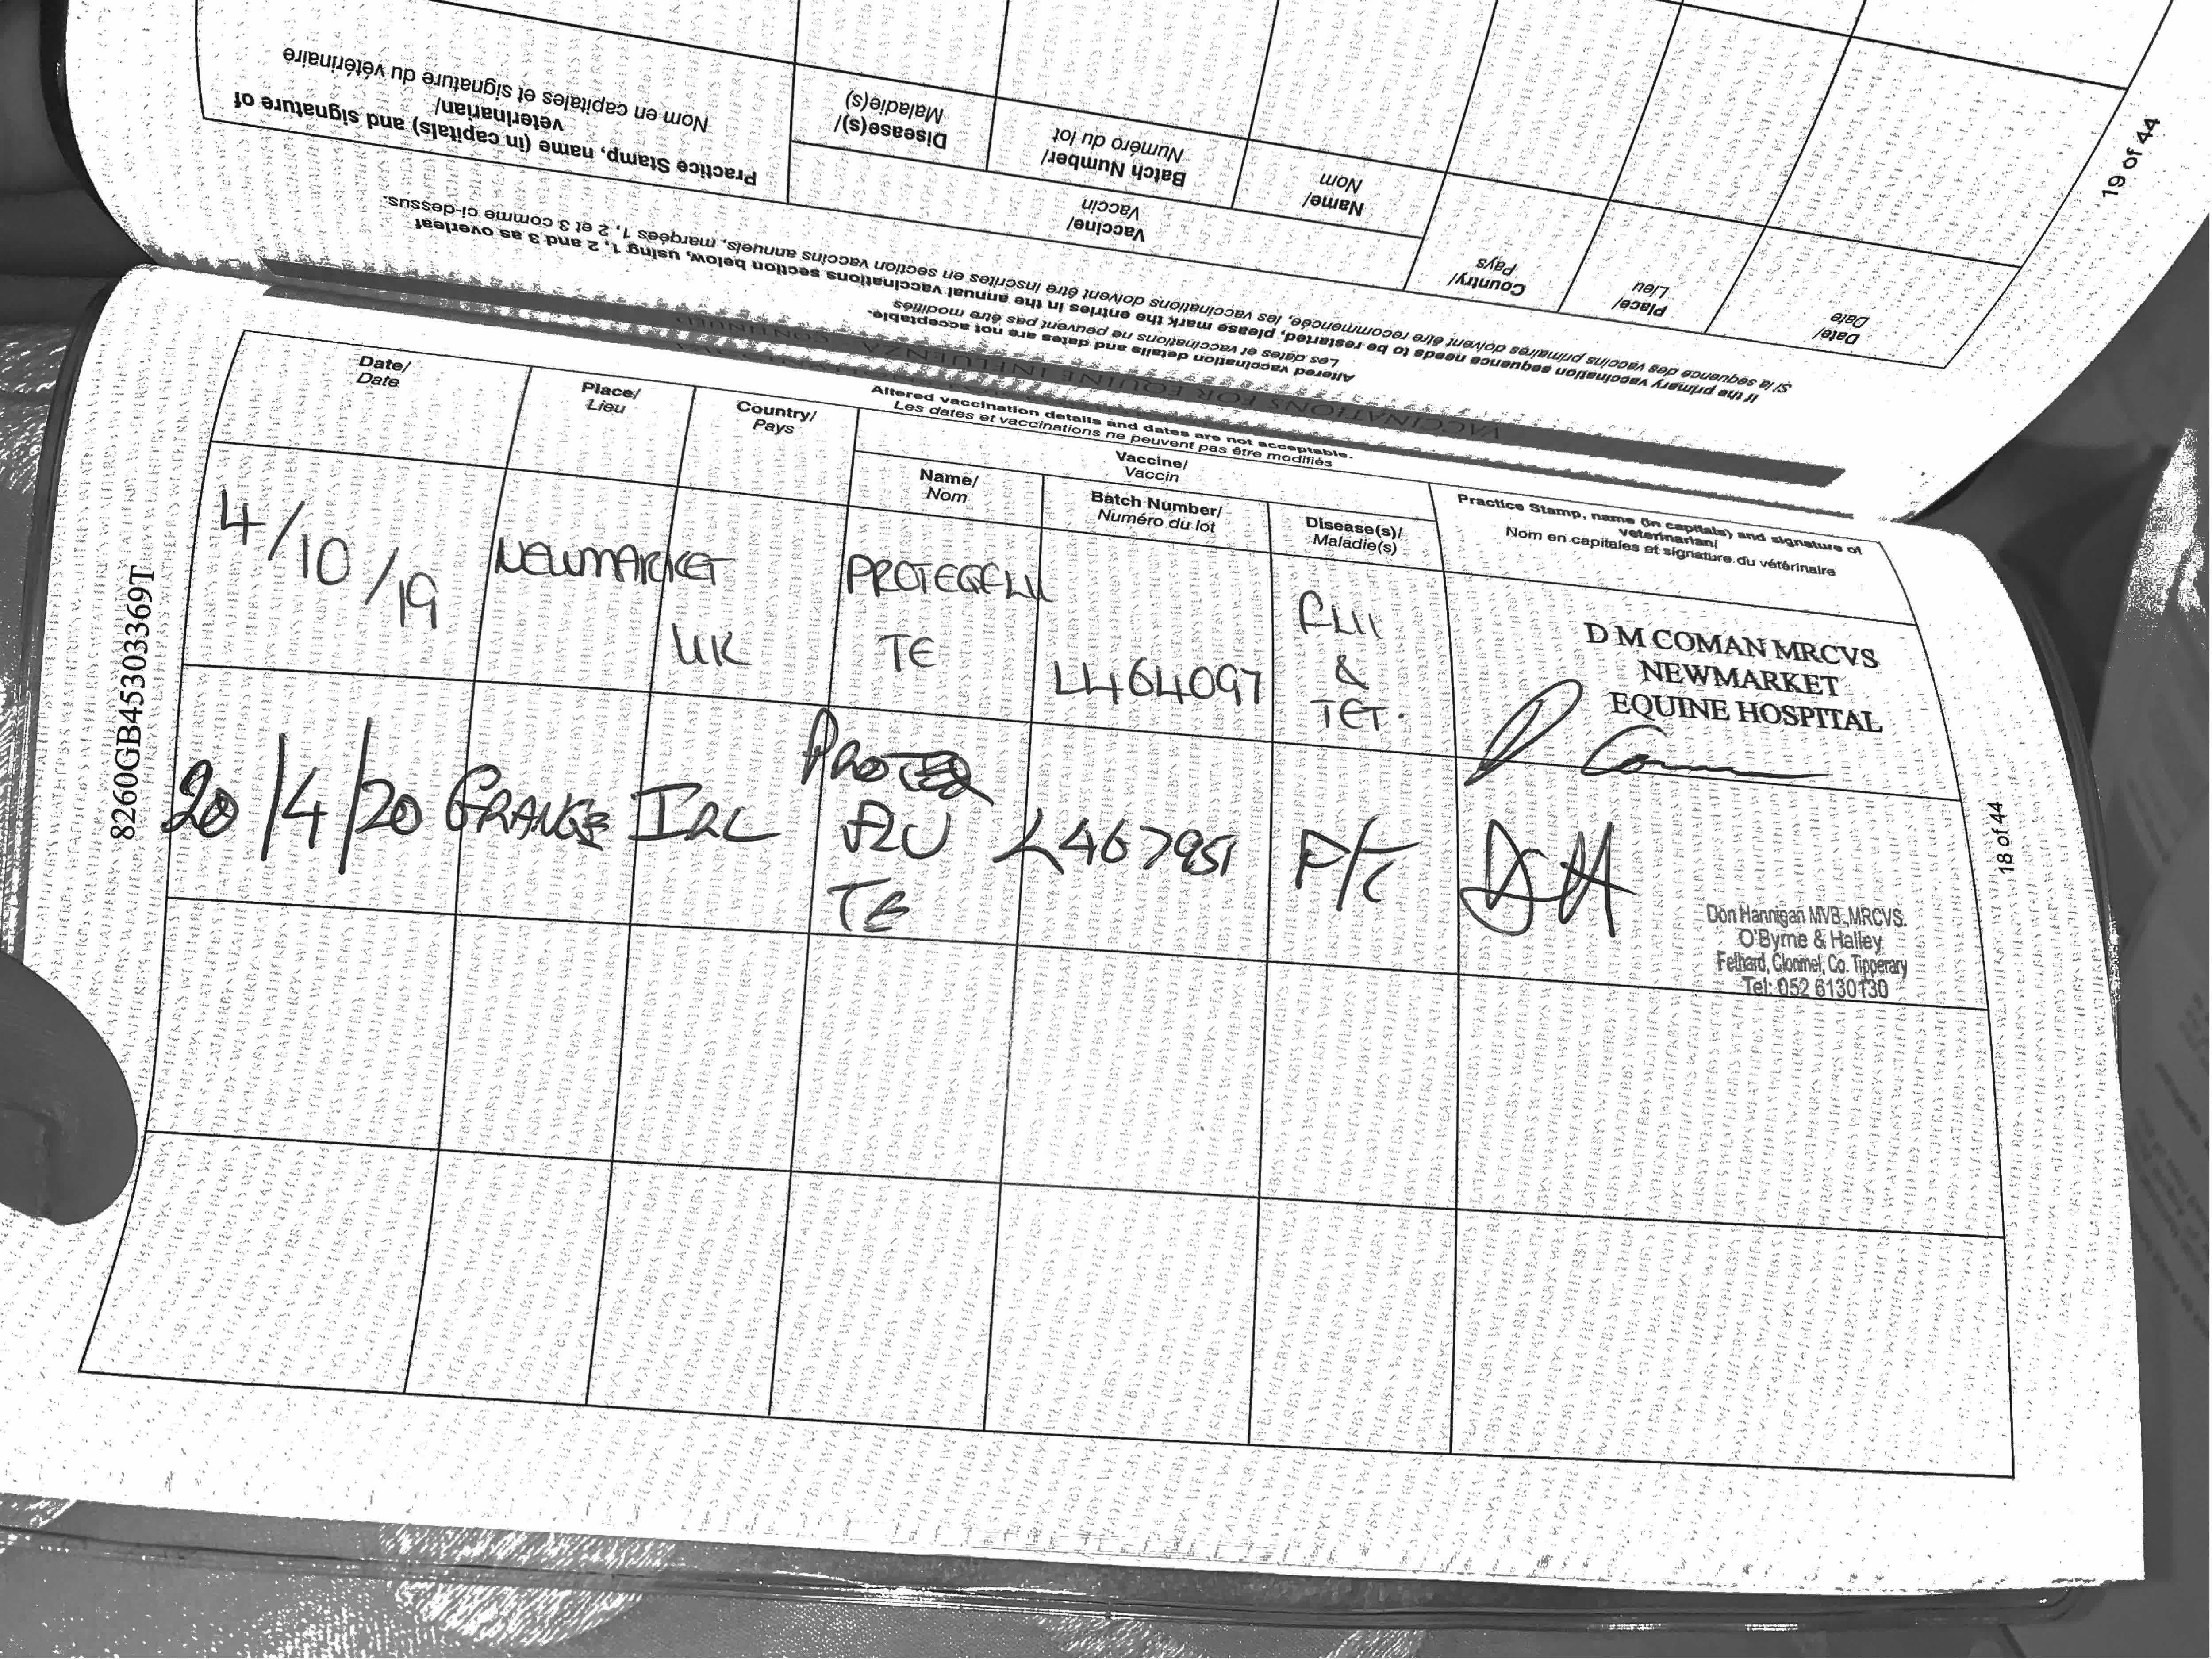 Practice Stamp, name (in capitals) and signature of
veterinarian/
Nom en capitales et signature du vétérinaire
Disease(s)/
Maladie(s)
Batch Number/
Numéro du lot
Name/
Nom
Vaccine/
Vaccin
Country/
Pays
Place/
Lieu
Date/
Date
19 of 44
If the primary vaccination sequence needs to be restarted, please mark the entries in the annual vaccinations section below, using 1, 2 and 3 as overleaf
Si la séquence des vaccins primaires doivent être recommencée, les vaccinations doivent être inscrites en section vaccins annuels, marqées 1, 2 et 3 comme ci-dessus.
Altered vaccination details and dates are not acceptable.
Les dates et vaccinations ne peuvent pas être modifiés
VACCINATIONS FOR EQUINE INFLUENZA CONTINUED
Altered vaccination details and dates are not acceptable.
Les dates et vaccinations ne peuvent pas être modifiés
Date/
Date
Place/
Lieu
Country/
Pays
Vaccine/
Vaccin
Name/
Nom
Batch Number/
Numéro du lot
Disease(s)/
Maladie(s)
Practice Stamp, name (in capitals) and signature of
veterinarian/
Nom en capitales et signature du vétérinaire
4/10/19
NEWMARKET
UK
PROTEQFLU
TE
L464097
FLU
&
TET.
D M COMAN MRCVS
NEWMARKET
EQUINE HOSPITAL
20/4/20
GRANGE
IRL
PROTEQ
FLU
TE
L467951
F/T
Don Hannigan MVB. MRCVS.
O'Byrne & Halley
Fethard, Clonmel, Co. Tipperary
Tel: 052 6130130
8260GB45303369T
18 of 44